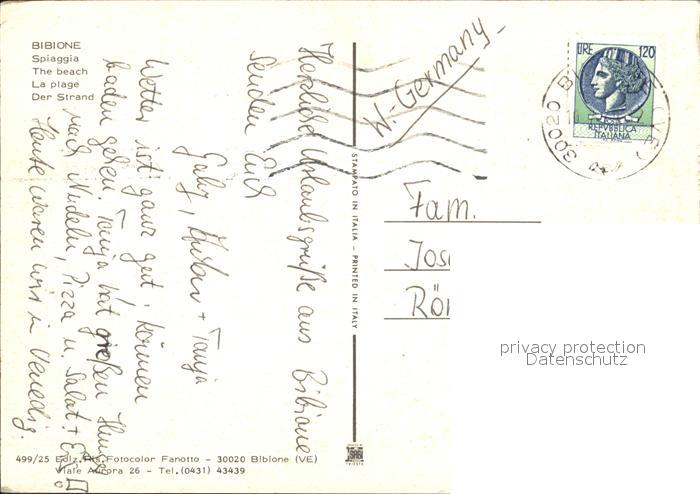 BIBIONE
Spiaggia
The beach
La plage
Der Strand
Herzliche Urlaubsgrüße aus Bibione
senden Euch
Gaby, + Tanja
Wetter ist ganz gut, können
baden gehen. Tanja hat großen
nach Nudeln, Pizza u. Salat +
Heute waren wir in Venedig.
499/25 Fotocolor Fanotto - 30020 Bibione (VE)
Viale Aurora 26 - Tel. (0431) 43439
STAMPATO IN ITALIA - PRINTED IN ITALY
TRIESTE
W.-Germany
LIRE 120
REPVBBLICA
ITALIANA
30020 B
Fam.
Jos
Rö
privacy protection
Datenschutz